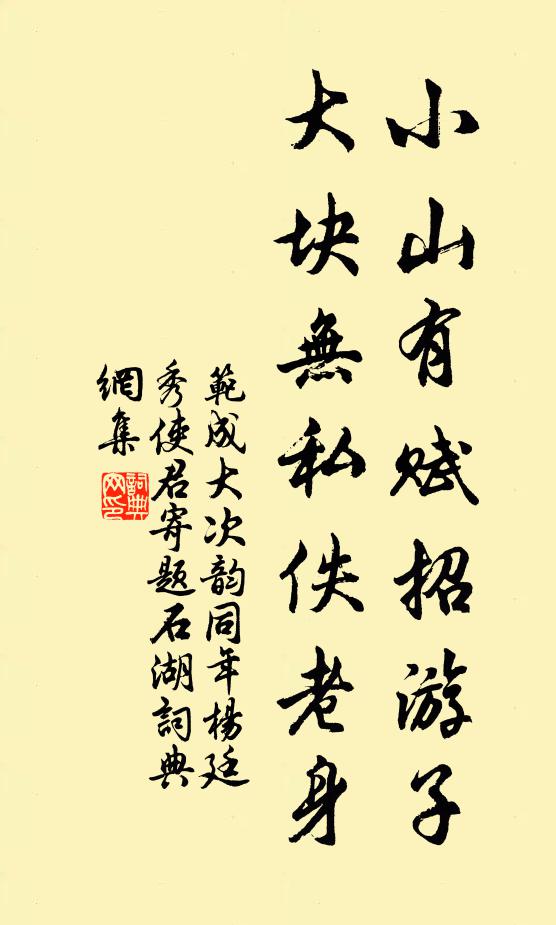 小山有赋招游子
大块無私佚老身
範成大次韵同年楊廷
秀使君寄题石湖詞典
網集
詞典網印